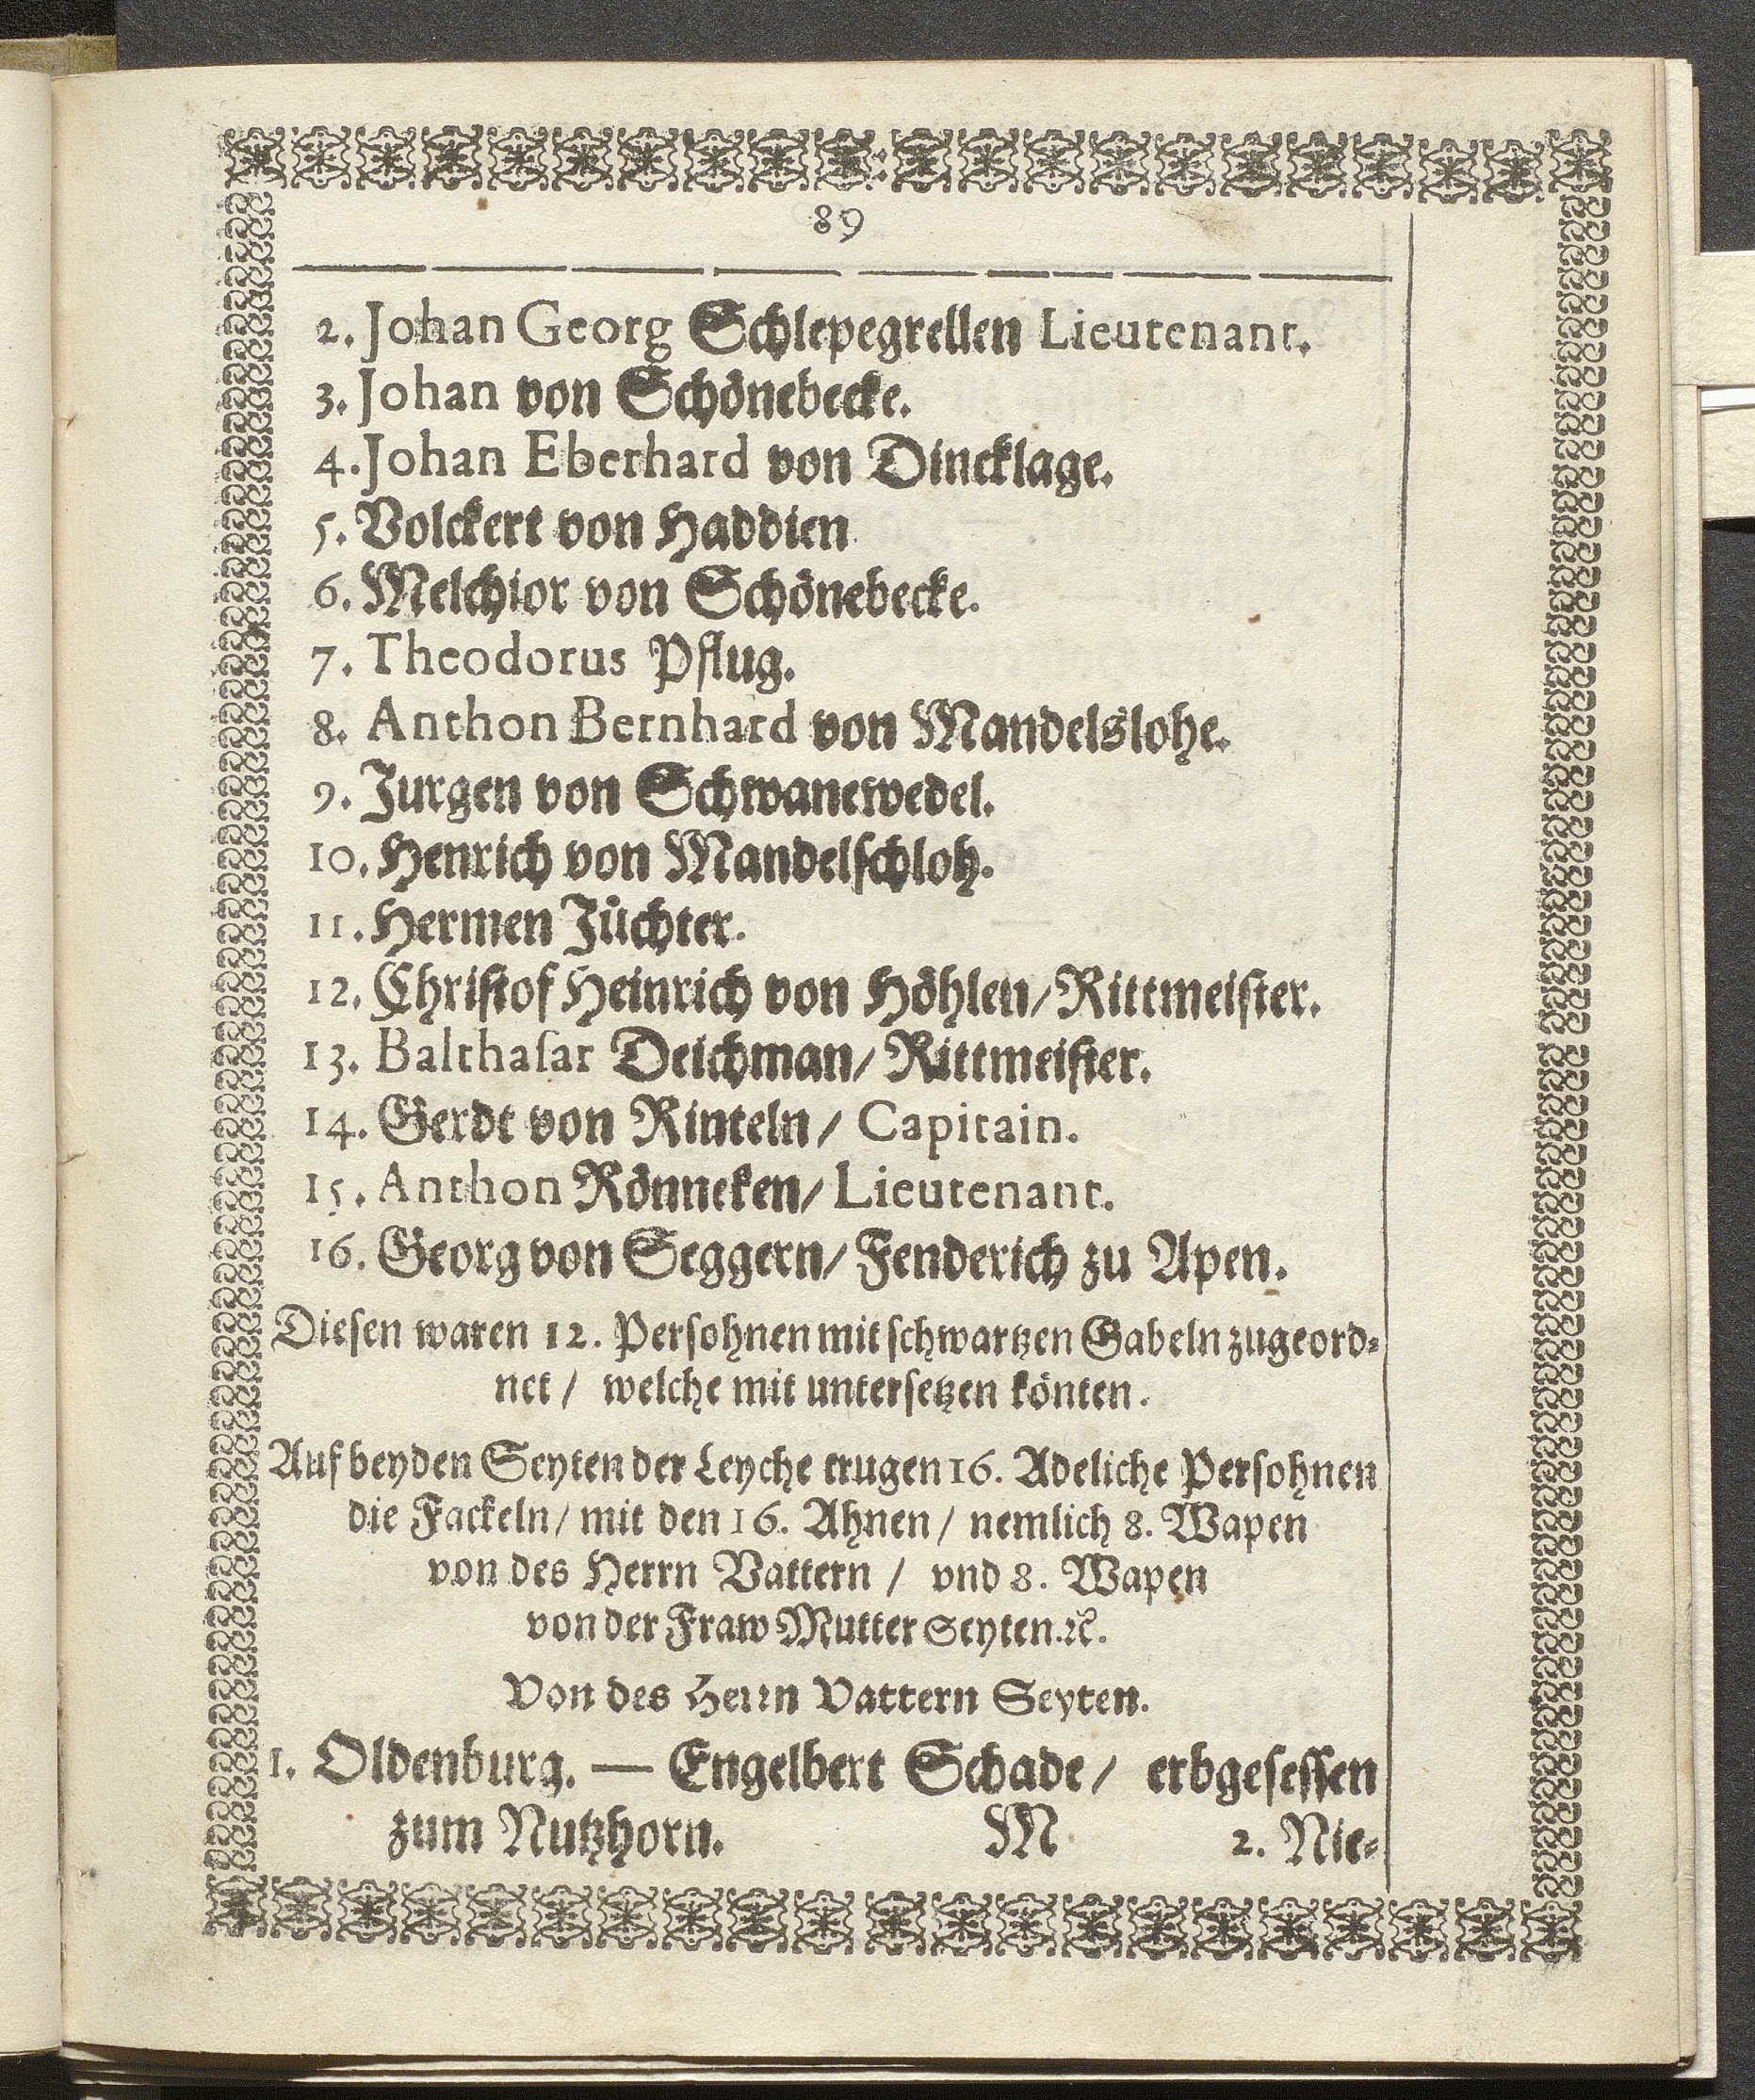 89
2. Johan Georg Schlepegrellen Lieutenant.
3. Johan von Schönebecke.
4. Johan Eberhard von Dincklage.
5. Volckert von Haddien
6. Melchior von Schönebecke.
7. Theodorus Pflug.
8. Anthon Bernhard von Mandelslohe.
9. Jurgen von Schwanewedel.
10. Henrich von Mandelſchloh.
11. Hermen Jüchter.
12. Chriſtof Heinrich von Höhlen/ Rittmeiſter.
13. Balthaſar Deichman/ Rittmeiſter.
14. Gerdt von Rinteln/ Capitain.
15. Anthon Rönneken/ Lieutenant.
16. Georg von Seggern/ Fenderich zu Apen.
Dieſen waren 12. Perſohnen mit ſchwartzen Gabeln zugeord-
net/ welche mit unterſetzen könten.
Auf beyden Seyten der Leyche trugen 16. Adeliche Perſohnen
die Fackeln/ mit den 16. Ahnen/ nemlich 8. Wapen
von des Herrn Vattern/ vnd 8. Wapen
von der Fraw Mutter Seyten. ꝛc.
Von des Herrn Vattern Seyten.
1. Oldenburg. — Engelbert Schade/ erbgeſeſſen
zum Nutzhorn. M 2. Nie-